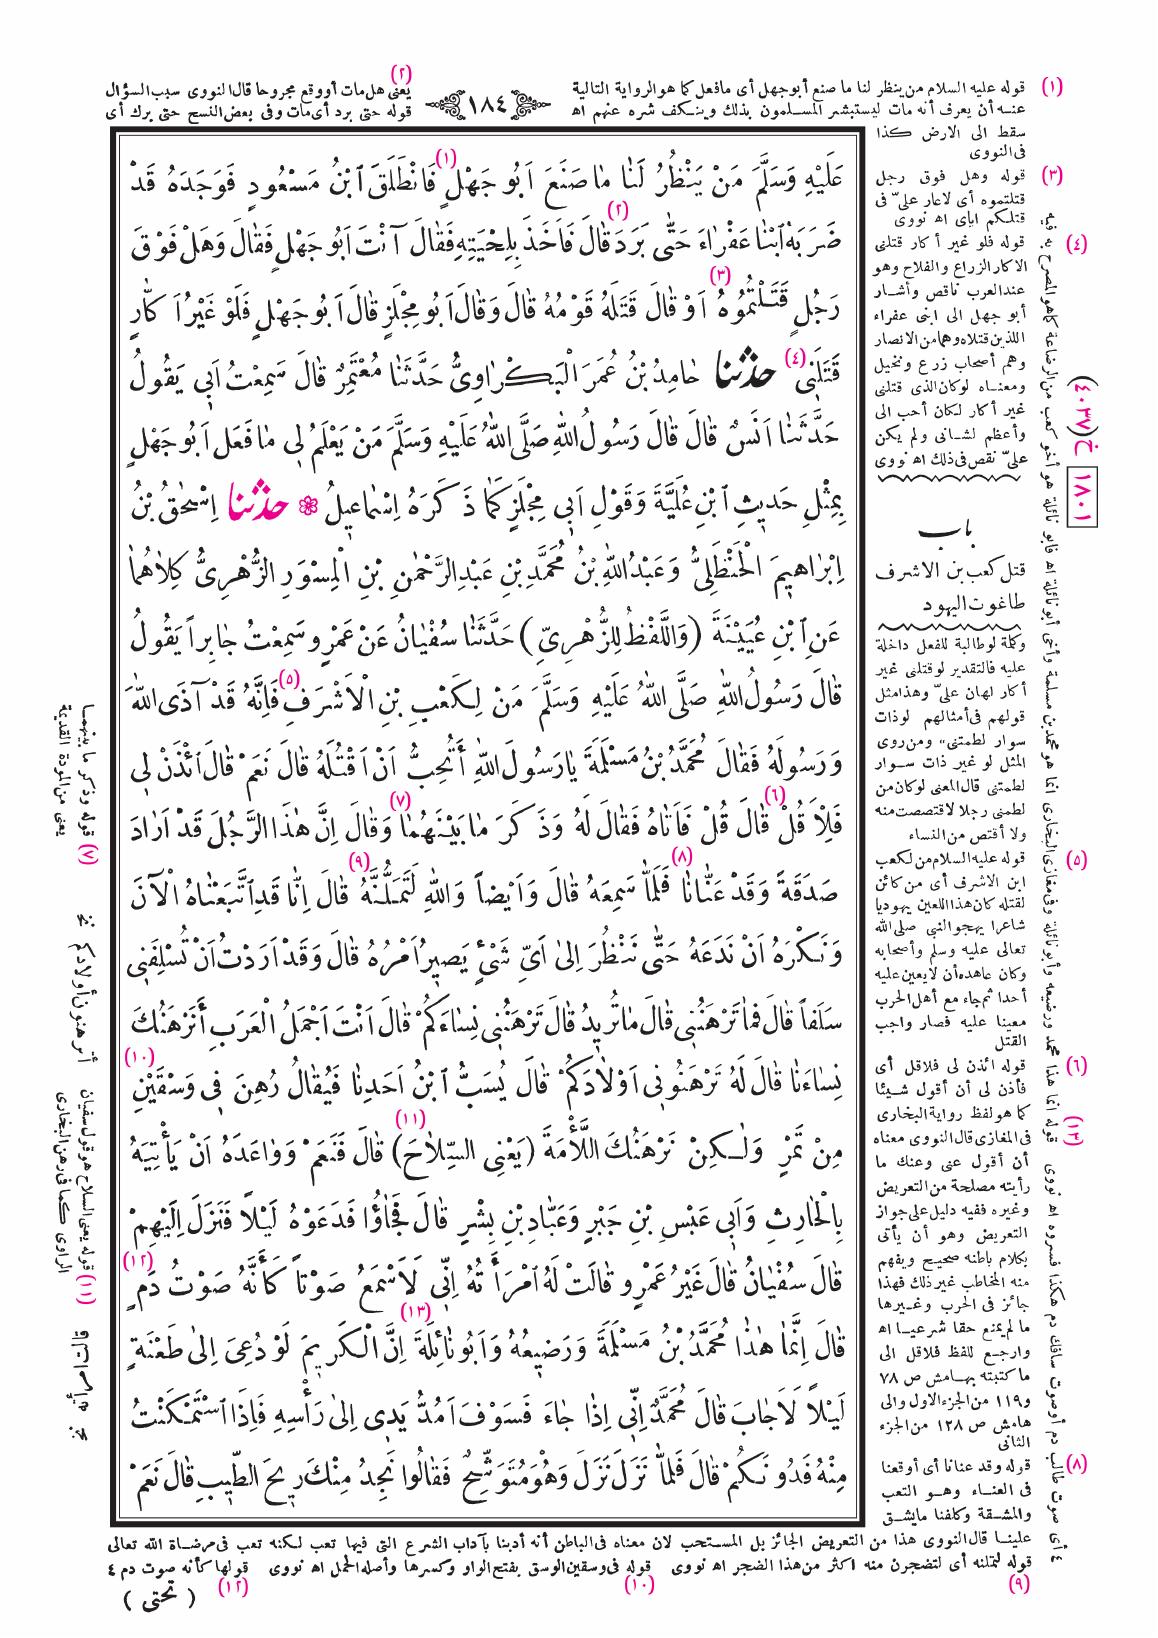 (٢)
(١) قوله عليه السلام من ينظر لنا ما صنع أبو جهل أى ما فعل كما هو الرواية التالية
١٨٤
يعنى هل مات أو وقع مجروحا قال النووى سبب السؤال
عنه أن يعرف أنه مات ليستبشر المسلمون بذلك وينكف شره عنهم اه
قوله حتى برد أى مات وفى بعض النسخ حتى برك أى
سقط الى الارض كذا
فى النووى
(٣) قوله وهل فوق رجل
قتلتموه أى لاعار علىّ فى
قتلكم اياى اه نووى
(٤) قوله فلو غير أكار قتلنى
الاكار الزراع والفلاح وهو
عند العرب ناقص وأشار
أبو جهل الى ابنى عفراء
اللذين قتلاه وهما من الانصار
وهم أصحاب زرع ونخيل
ومعناه لو كان الذى قتلنى
غير أكار لكان أحب الى
وأعظم لشانى ولم يكن
علىّ نقص فى ذلك اه نووى
باب
قتل كعب بن الاشرف
طاغوت اليهود
وكلمة لو طالبة للفعل داخلة
عليه فالتقدير لو قتلنى غير
أكار لهان علىّ وهذا مثل
قولهم فى أمثالهم لو ذات
سوار لطمتنى، ومن روى
المثل لو غير ذات سوار
لطمتنى قال المعنى لو كان من
لطمنى رجلا لاقتصصت منه
ولا أقتص من النساء
(٥) قوله عليه السلام من لكعب
ابن الاشرف أى من كائن
لقتله كان هذا اللعين يهوديا
شاعرا يهجو النبى صلى الله
تعالى عليه وسلم وأصحابه
وكان عاهده أن لا يعين عليه
أحدا ثم جاء مع أهل الحرب
معينا عليه فصار واجب
القتل
(٦) قوله ائذن لى فلاقل أى
فأذن لى أن أقول شيئا
كما هو لفظ رواية البخارى
فى المغازى قال النووى معناه
أن أقول عنى وعنك ما
رأيته مصلحة من التعريض
وغيره ففيه دليل على جواز
التعريض وهو أن يأتى
بكلام باطنه صحيح ويفهم
منه المخاطب غير ذلك فهذا
جائز فى الحرب وغيرها
ما لم يمنع حقا شرعيا اه
وارجع للفظ فلاقل الى
ما كتبته بهامش ص ٧٨
و١١٩ من الجزء الاول والى
هامش ص ١٢٨ من الجزء
الثانى
(٨) قوله وقد عنانا أى أوقعنا
فى العناء وهو التعب
والمشقة وكلفنا ما يشق
خ (٤٠٣٧)
١٨٠١
عَلَيْهِ وَسَلَّمَ مَنْ يَنْظُرُ لَنَا مَا صَنَعَ اَبُو جَهْلٍ (١) فَانْطَلَقَ ابْنُ مَسْعُودٍ فَوَجَدَهُ قَدْ
ضَرَبَهُ ابْنَا عَفْرَاءَ حَتّٰى بَرَدَ (٢) قَالَ فَاَخَذَ بِلِحْيَتِهِ فَقَالَ آنْتَ اَبُو جَهْلٍ فَقَالَ وَهَلْ فَوْقَ
رَجُلٍ قَتَلْتُمُوهُ (٣) اَوْ قَالَ قَتَلَهُ قَوْمُهُ قَالَ وَقَالَ اَبُو مِجْلَزٍ قَالَ اَبُو جَهْلٍ فَلَوْ غَيْرُ اَكَّارٍ
قَتَلَنِى (٤) حدثنا حَامِدُ بْنُ عُمَرَ الْبَكْرَاوِىُّ حَدَّثَنَا مُعْتَمِرٌ قَالَ سَمِعْتُ اَبِى يَقُولُ
حَدَّثَنَا اَنَسٌ قَالَ قَالَ رَسُولُ اللهِ صَلَّى اللهُ عَلَيْهِ وَسَلَّمَ مَنْ يَعْلَمُ لِى مَا فَعَلَ اَبُو جَهْلٍ
بِمِثْلِ حَدِيثِ ابْنِ عُلَيَّةَ وَقَوْلِ اَبِى مِجْلَزٍ كَمَا ذَكَرَهُ اِسْمَاعِيلُ ❁ حدثنا اِسْحٰقُ بْنُ
اِبْرَاهِيمَ الْحَنْظَلِىُّ وَعَبْدُ اللهِ بْنُ مُحَمَّدِ بْنِ عَبْدِ الرَّحْمٰنِ بْنِ الْمِسْوَرِ الزُّهْرِىُّ كِلَاهُمَا
عَنِ ابْنِ عُيَيْنَةَ (وَاللَّفْظُ لِلزُّهْرِىِّ) حَدَّثَنَا سُفْيَانُ عَنْ عَمْرٍو سَمِعْتُ جَابِراً يَقُولُ
قَالَ رَسُولُ اللهِ صَلَّى اللهُ عَلَيْهِ وَسَلَّمَ مَنْ لِكَعْبِ بْنِ الْاَشْرَفِ (٥) فَاِنَّهُ قَدْ آذَى اللهَ
وَرَسُولَهُ فَقَالَ مُحَمَّدُ بْنُ مَسْلَمَةَ يَا رَسُولَ اللهِ أَتُحِبُّ اَنْ اَقْتُلَهُ قَالَ نَعَمْ قَالَ ائْذَنْ لِى
فَلِاَقُلْ (٦) قَالَ قُلْ فَاَتَاهُ فَقَالَ لَهُ وَذَكَرَ مَا بَيْنَهُمَا (٧) وَقَالَ اِنَّ هٰذَا الرَّجُلَ قَدْ اَرَادَ
صَدَقَةً وَقَدْ عَنَّانَا (٨) فَلَمَّا سَمِعَهُ قَالَ وَاَيْضاً وَاللهِ لَتَمَلُّنَّهُ (٩) قَالَ اِنَّا قَدِ اتَّبَعْنَاهُ الْآنَ
وَنَكْرَهُ اَنْ نَدَعَهُ حَتّٰى نَنْظُرَ اِلٰى اَىِّ شَىْءٍ يَصِيرُ اَمْرُهُ قَالَ وَقَدْ اَرَدْتُ اَنْ تُسْلِفَنِى
سَلَفاً قَالَ فَمَا تَرْهَنُنِى قَالَ مَا تُرِيدُ قَالَ تَرْهَنُنِى نِسَاءَكُمْ قَالَ اَنْتَ اَجْمَلُ الْعَرَبِ أَنَرْهَنُكَ
نِسَاءَنَا قَالَ لَهُ تَرْهَنُونِى اَوْلَادَكُمْ قَالَ يُسَبُّ ابْنُ اَحَدِنَا فَيُقَالُ رُهِنَ فِى وَسْقَيْنِ (١٠)
مِنْ تَمْرٍ وَلٰكِنْ نَرْهَنُكَ اللَّأْمَةَ (يَعْنِى السِّلَاحَ) (١١) قَالَ فَنَعَمْ وَوَاعَدَهُ اَنْ يَأْتِيَهُ
بِالْحَارِثِ وَاَبِى عَبْسِ بْنِ جَبْرٍ وَعَبَّادِ بْنِ بِشْرٍ قَالَ فَجَاؤُا فَدَعَوْهُ لَيْلاً فَنَزَلَ اِلَيْهِمْ
قَالَ سُفْيَانُ قَالَ غَيْرُ عَمْرٍو قَالَتْ لَهُ امْرَأَتُهُ اِنِّى لَاَسْمَعُ صَوْتاً كَأَنَّهُ صَوْتُ دَمٍ (١٢)
قَالَ اِنَّمَا هٰذَا مُحَمَّدُ بْنُ مَسْلَمَةَ وَرَضِيعُهُ وَاَبُو نَائِلَةَ (١٣) اِنَّ الْكَرِيمَ لَوْ دُعِىَ اِلٰى طَعْنَةٍ
لَيْلاً لَاَجَابَ قَالَ مُحَمَّدٌ اِنِّى اِذَا جَاءَ فَسَوْفَ اَمُدُّ يَدِى اِلٰى رَأْسِهِ فَاِذَا اسْتَمْكَنْتُ
مِنْهُ فَدُونَكُمْ قَالَ فَلَمَّا نَزَلَ نَزَلَ وَهُوَ مُتَوَشِّحٌ فَقَالُوا نَجِدُ مِنْكَ رِيحَ الطِّيبِ قَالَ نَعَمْ
علينا قال النووى هذا من التعريض الجائز بل المستحب لان معناه فى الباطن أنه أدبنا بآداب الشرع التى فيها تعب لكنه تعب فى مرضاة الله تعالى
(٩) قوله لتملنه أى لتضجرن منه أكثر من هذا الضجر اه نووى (١٠) قوله فى وسقين الوسق بفتح الواو وكسرها وأصله الحمل اه نووى (١٢) قولها كأنه صوت دم ٤
( تحتى )
(٧) قوله وذكر ما بينهما
يعنى من المودة القديمة
نخ أترهنون أولادكم
(١١) قوله يعنى السلاح هو قول سفيان
الراوى كما فى رهن البخارى
٤ أى صوت طالب دم أو صوت سافك دم هكذا فسروه اه نووى (١٣) قوله انما هذا محمد ورضيعه وأبو نائلة وفى مغازى البخارى انما هو محمد بن مسلمة وأخى أبو نائلة اه فابو نائلة هو أخو كعب من الرضاعة كما هو المصرح به فيه